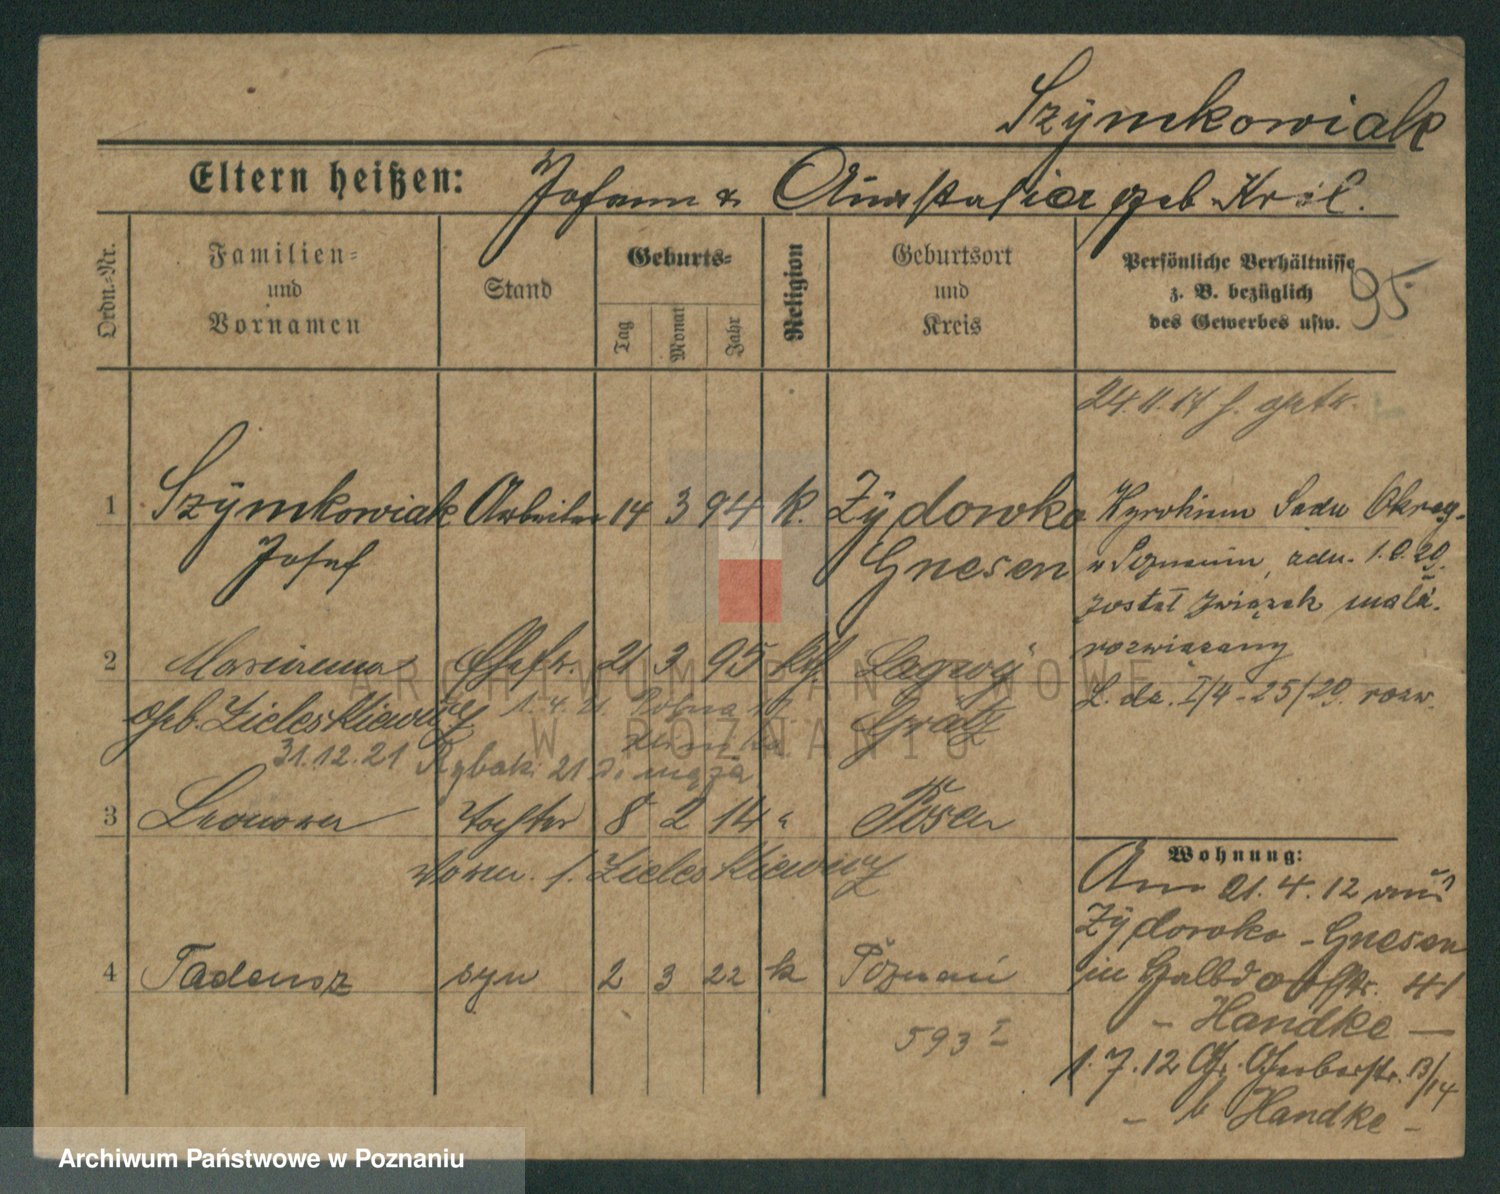 Szymkowiak
Eltern heißen: Johann & Anastasia geb. Król.
Ordn.-Nr.
Familien-
und
Vornamen
Stand
Geburts-
Tag
Monat
Jahr
Religion
Geburtsort
und
Kreis
Persönliche Verhältnisse
z. B. bezüglich
des Gewerbes usw.
95
24.11.17
1 Szymkowiak Arbeiter 14 3 94 k. Zydowko
Josef Gnesen
Wyrokiem Sadu Okręg.
w Poznaniu, adn.
został związek małż.
rozwiązany
L. dz. I/4-25/29. rozw.
2 Marianna Ehefr. 21 3 95 kth.
geb. Zieleskiewicz Grätz
1.4.21
31.12.21 Rybaki 21 męża
3 Leonora Tochter 8 2 14 " Posen
vorm. Zieleskiewicz
4 Tadeusz syn 2 3 22 k Poznań
593 I
Wohnung:
Am 21.4.12 aus
Zydowko - Gnesen
in Halbdorfstr. 41
- Handke -
1.7.12 Gr. Gerberstr. 13/14
- b Handke -
ARCHIWUM PAŃSTWOWE
W POZNANIU
Archiwum Państwowe w Poznaniu